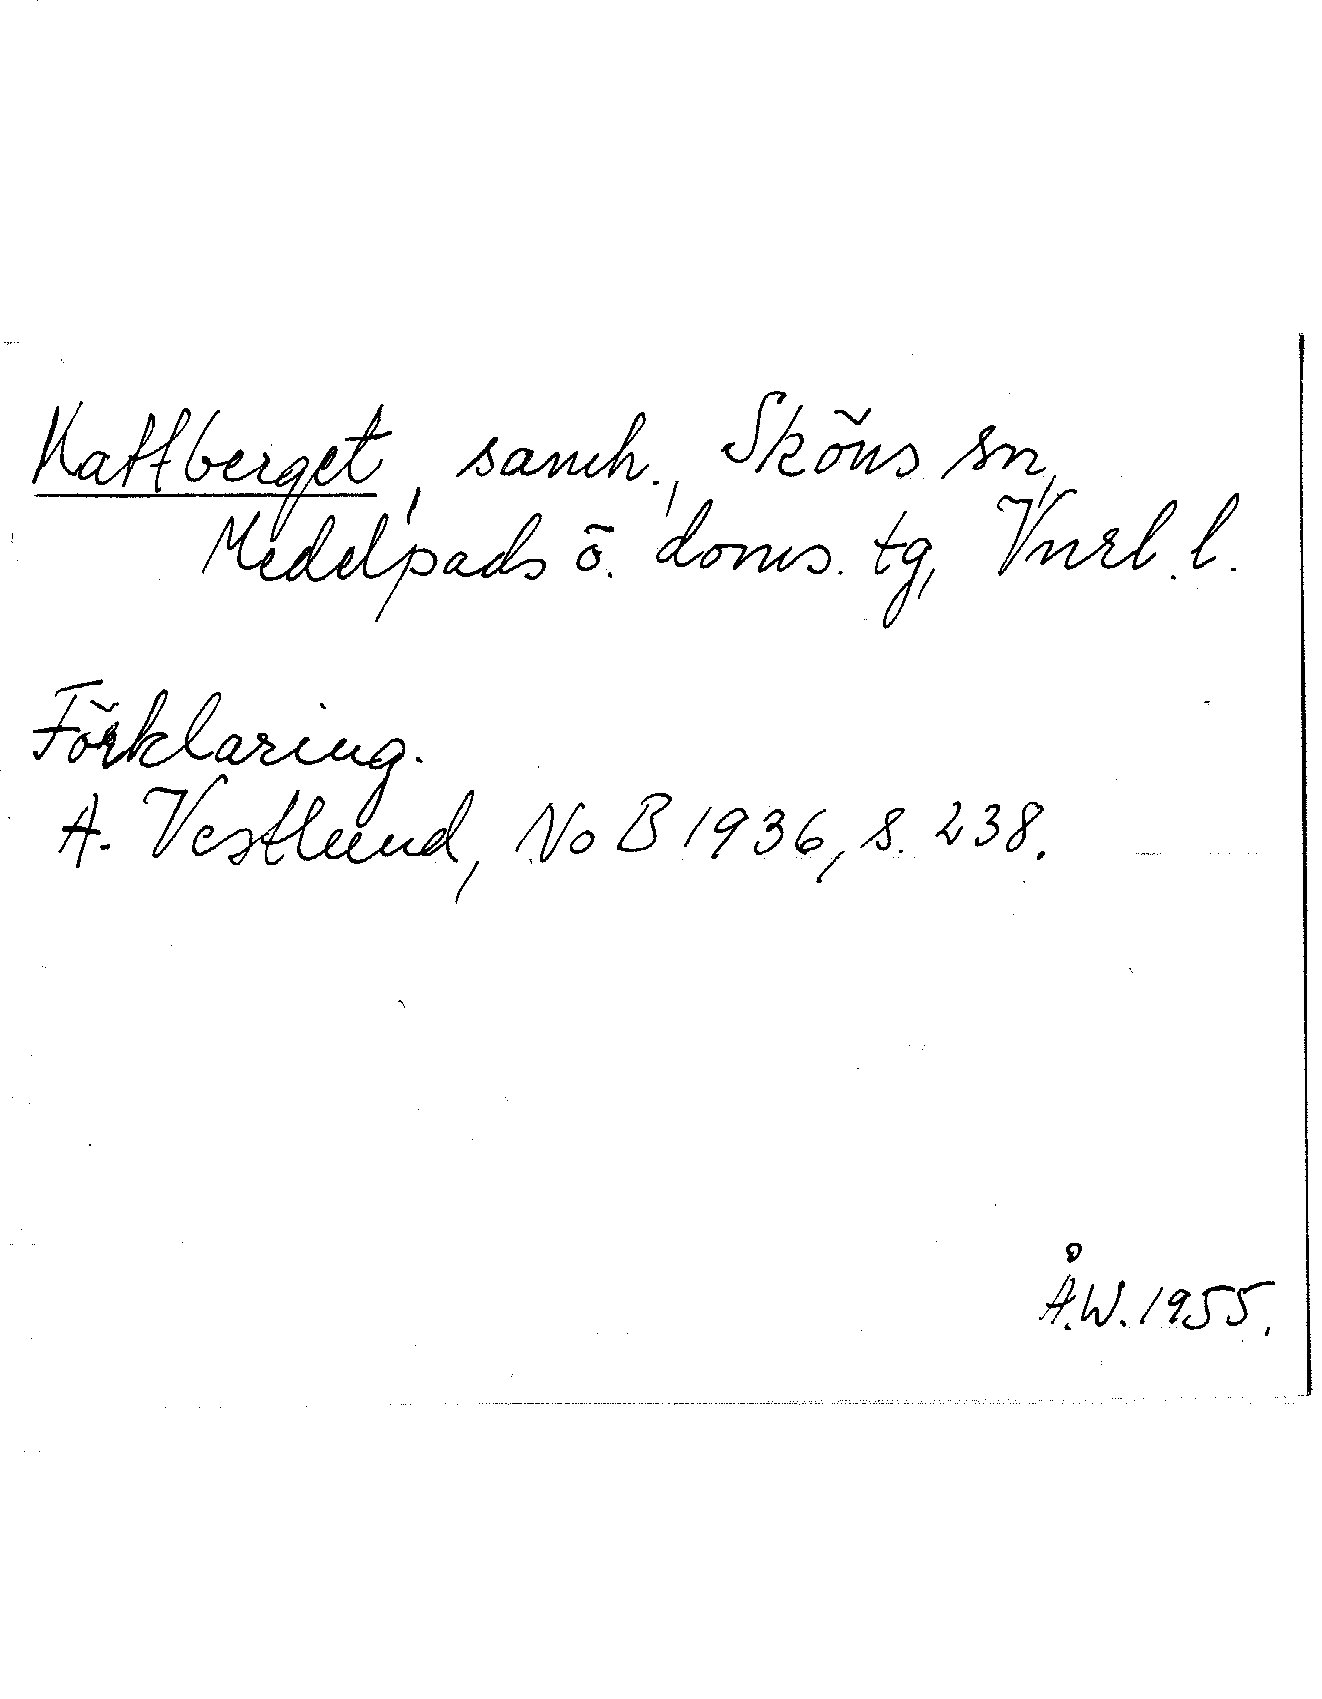 Kattberget, samh., Sköns sn,
Medelpads ö. doms. tg, Vnrl. l.
Förklaring.
A. Vestlund, NoB 1936, s. 238.
Å.W. 1955.